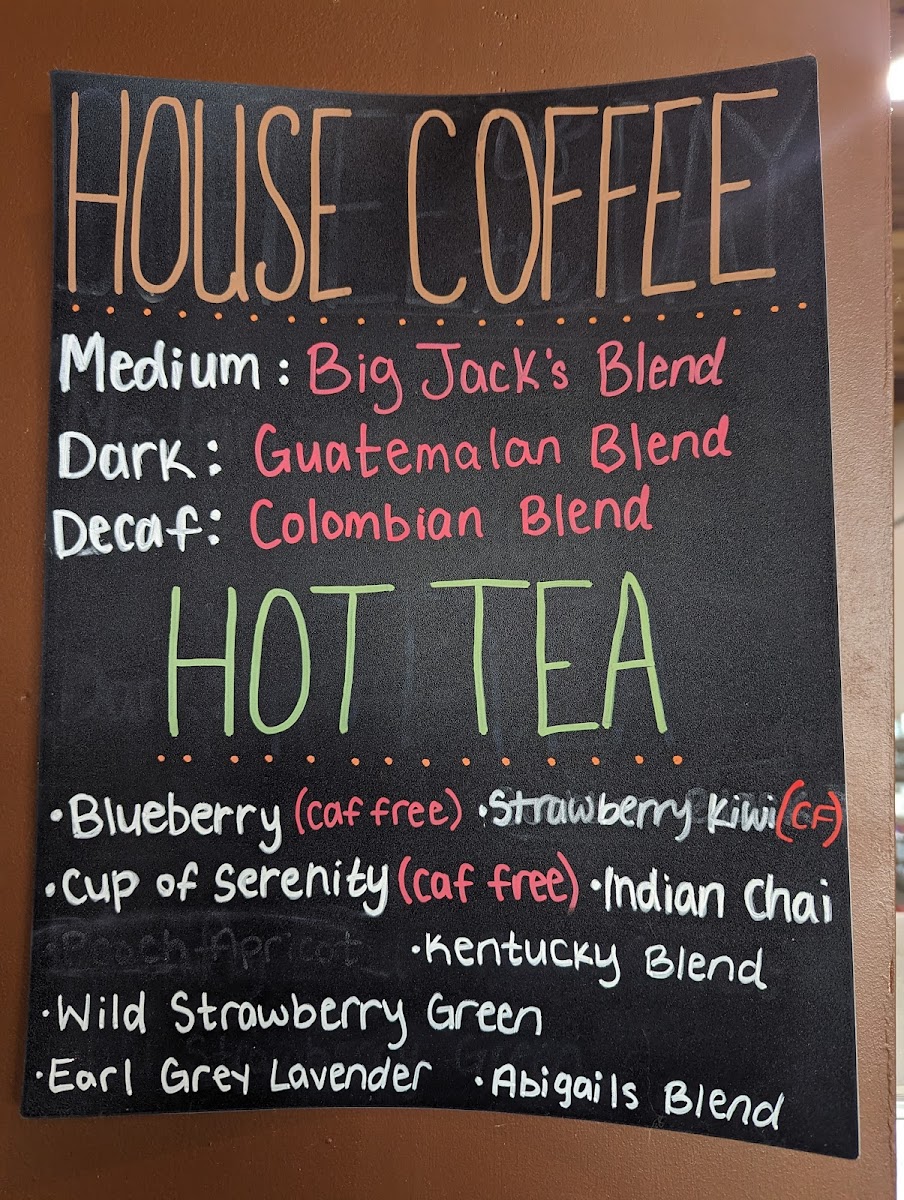 HOUSE COFFEE
Medium: Big Jack's Blend
Dark: Guatemalan Blend
Decaf: Colombian Blend
HOT TEA
•Blueberry (caf free) •Strawberry Kiwi (CF)
•Cup of Serenity (caf free) •Indian Chai
•Peach Apricot •Kentucky Blend
•Wild Strawberry Green
•Earl Grey Lavender •Abigails Blend